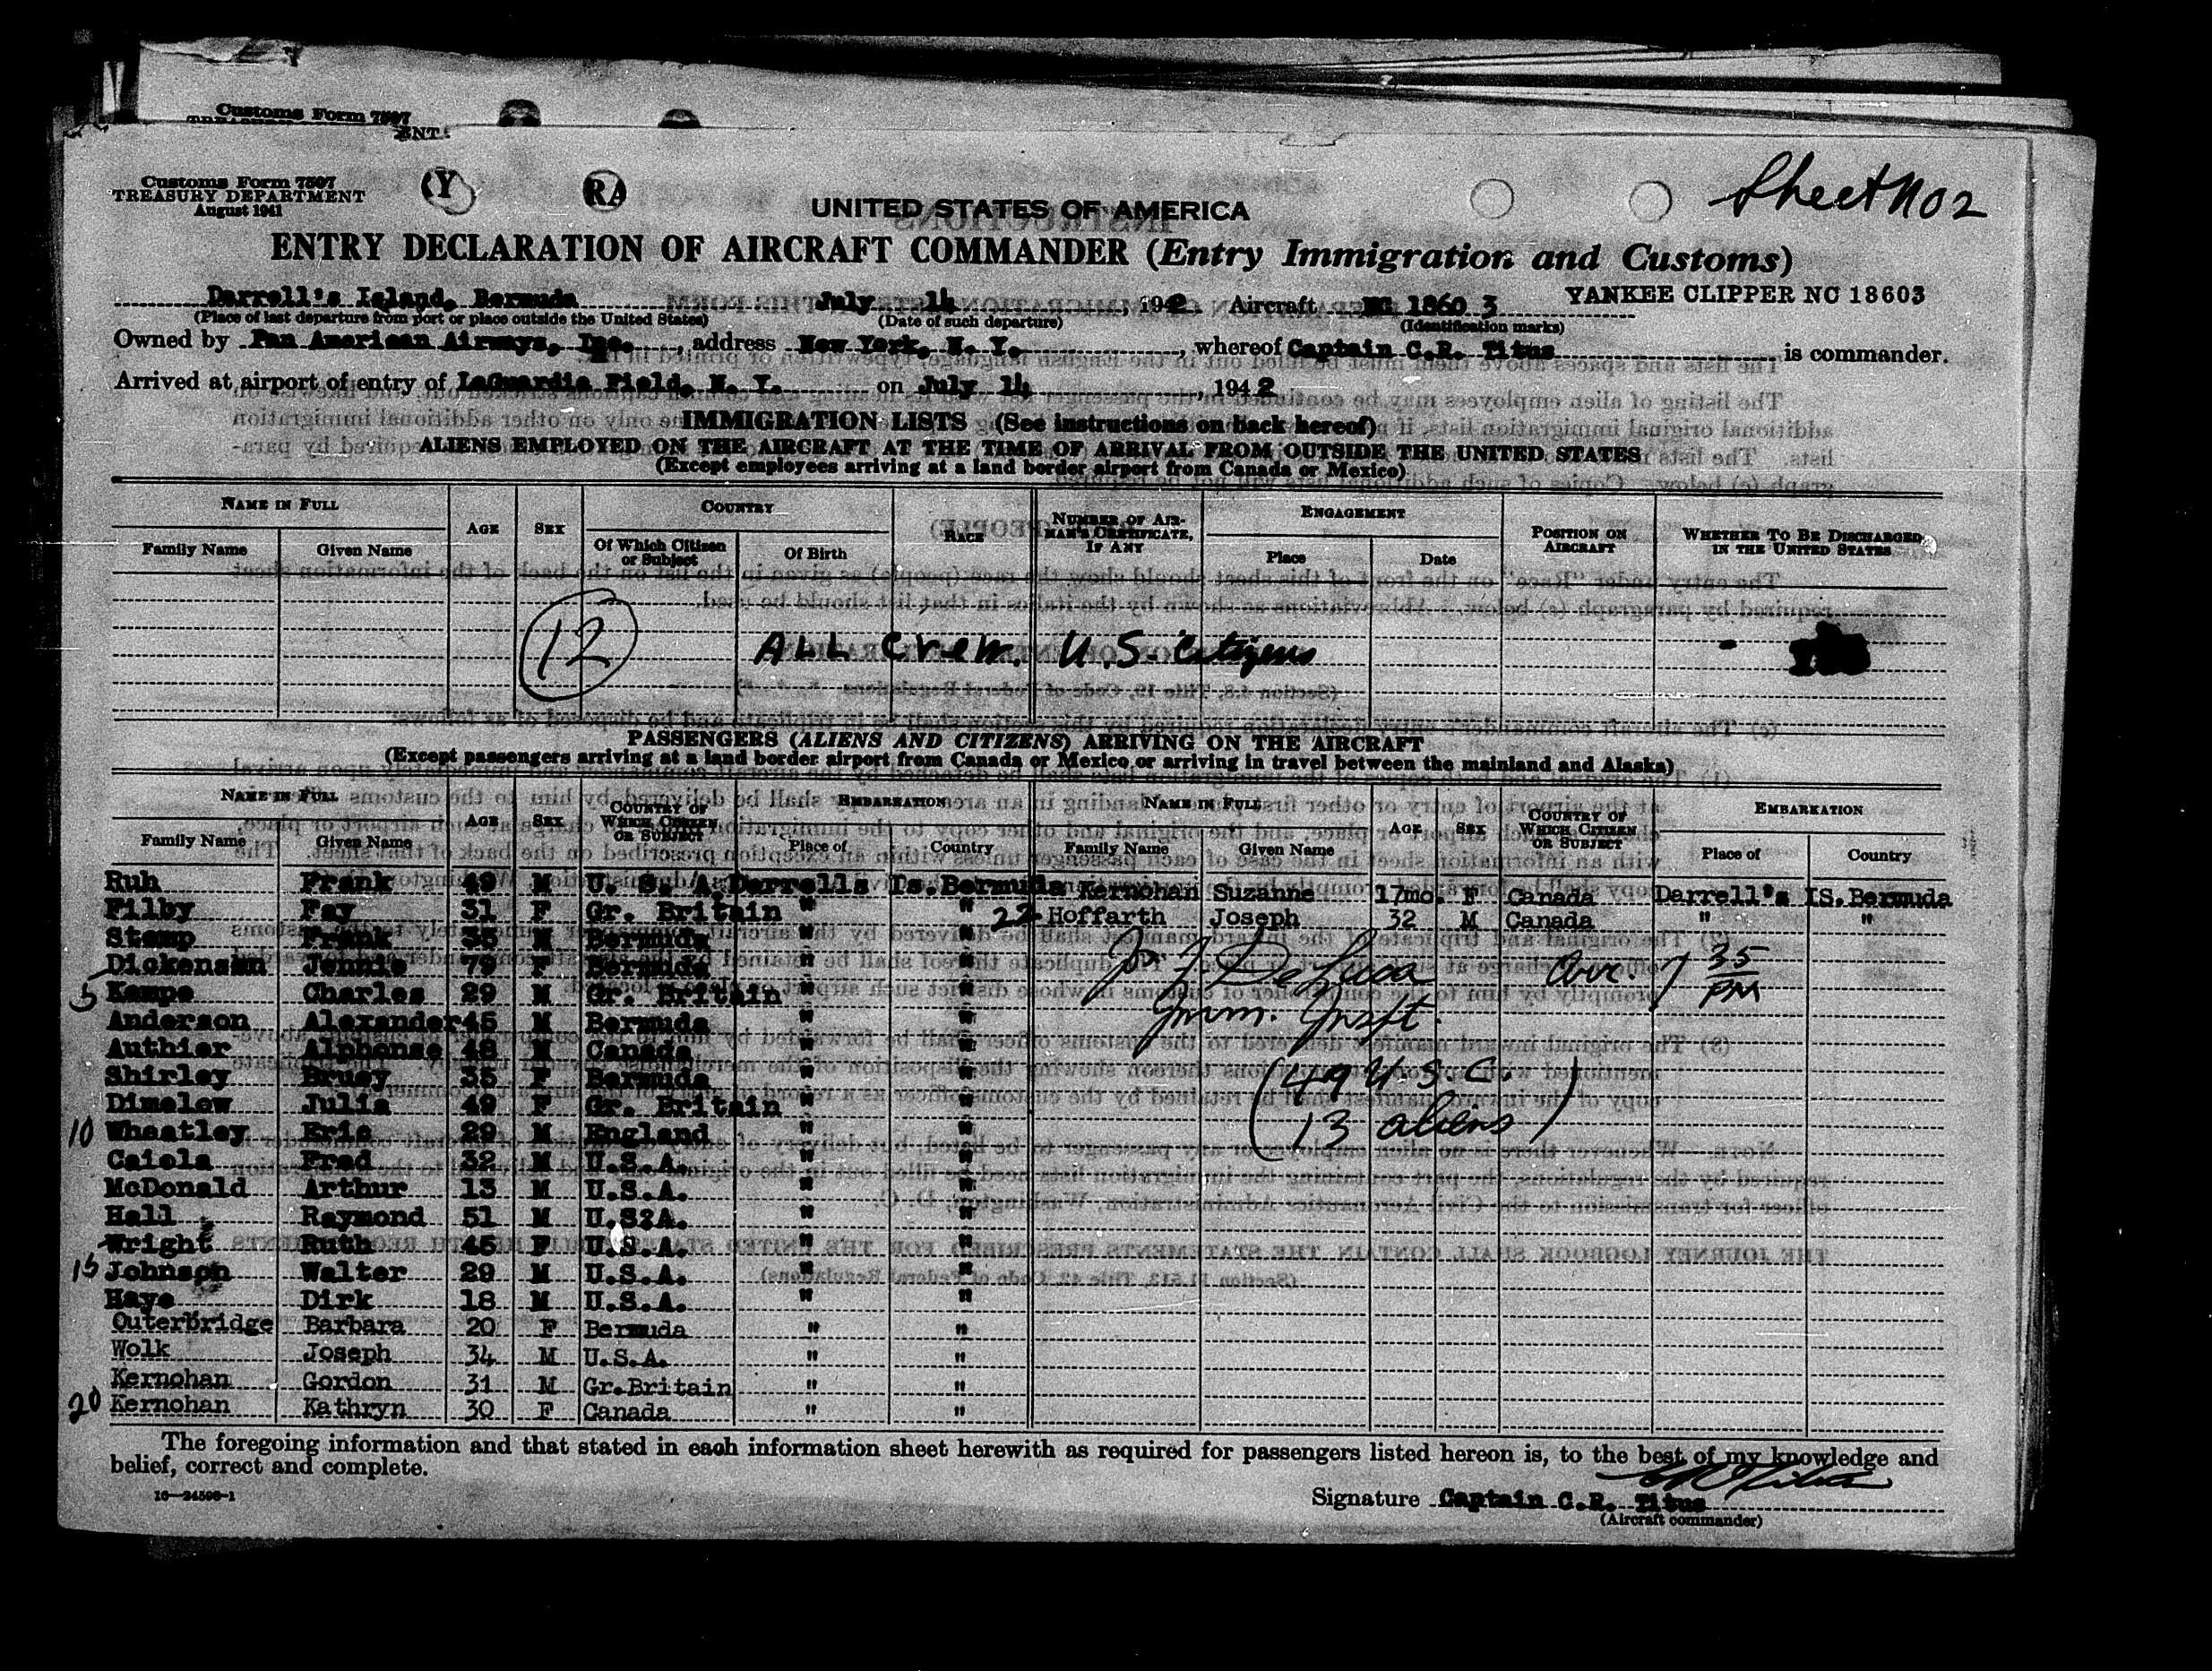 Customs Form 7507
Sheet No 2
Customs Form 7507
TREASURY DEPARTMENT
August 1941
UNITED STATES OF AMERICA
ENTRY DECLARATION OF AIRCRAFT COMMANDER (Entry Immigration and Customs)
Darrell's Island, Bermuda July 14, 1942. Aircraft NC 18603 YANKEE CLIPPER NC 18603
(Place of last departure from port or place outside the United States) (Date of such departure) (Identification marks)
Owned by Pan American Airways, Inc., address New York, N. Y., whereof Captain C.R. Titus is commander.
Arrived at airport of entry of LaGuardia Field, N. Y. on July 14, 1942
IMMIGRATION LISTS (See instructions on back hereof)
ALIENS EMPLOYED ON THE AIRCRAFT AT THE TIME OF ARRIVAL FROM OUTSIDE THE UNITED STATES
(Except employees arriving at a land border airport from Canada or Mexico)
NAME IN FULL AGE SEX COUNTRY RACE NUMBER OF AIRMAN'S CERTIFICATE, IF ANY ENGAGEMENT POSITION ON AIRCRAFT WHETHER TO BE DISCHARGED IN THE UNITED STATES
Family Name Given Name Of Which Citizen or Subject Of Birth Place Date
12 ALL Crew. U.S. Citizens
PASSENGERS (ALIENS AND CITIZENS) ARRIVING ON THE AIRCRAFT
(Except passengers arriving at a land border airport from Canada or Mexico or arriving in travel between the mainland and Alaska)
NAME IN FULL AGE SEX COUNTRY OF WHICH CITIZEN OR SUBJECT EMBARKATION NAME IN FULL AGE SEX COUNTRY OF WHICH CITIZEN OR SUBJECT EMBARKATION
Family Name Given Name Place of Country Family Name Given Name Place of Country
Ruh Frank 49 M U. S. A. Darrells Is. Bermuda Kernohan Suzanne 17mo. F Canada Darrell's IS. Bermuda
Filby Fay 31 F Gr. Britain " " 22 Hoffarth Joseph 32 M Canada " "
Stamp Frank 35 M Bermuda " "
Dickenson Jennie 79 F Bermuda " " DeLuca Arr. 7 35 PM
5 Kempe Charles 29 M Gr. Britain " " Imm. Inspt.
Anderson Alexander 45 M Bermuda " "
Authier Alphonse 48 M Canada " "
Shirley Brucy 35 F Bermuda " " (49 U.S.C.
Dimelow Julia 49 F Gr. Britain " " 13 aliens)
10 Wheatley Eric 29 M England " "
Caiola Fred 32 M U.S.A. " "
McDonald Arthur 13 M U.S.A. " "
Hall Raymond 51 M U.S2A. " "
Wright Ruth 45 F U.S.A. " "
15 Johnson Walter 29 M U.S.A. " "
Haye Dirk 18 M U.S.A. " "
Outerbridge Barbara 20 F Bermuda " "
Wolk Joseph 34 M U.S.A. " "
Kernohan Gordon 31 M Gr.Britain " "
20 Kernohan Kathryn 30 F Canada " "
The foregoing information and that stated in each information sheet herewith as required for passengers listed hereon is, to the best of my knowledge and
belief, correct and complete.
16—24598-1
Signature Captain C.R. Titus
(Aircraft commander)